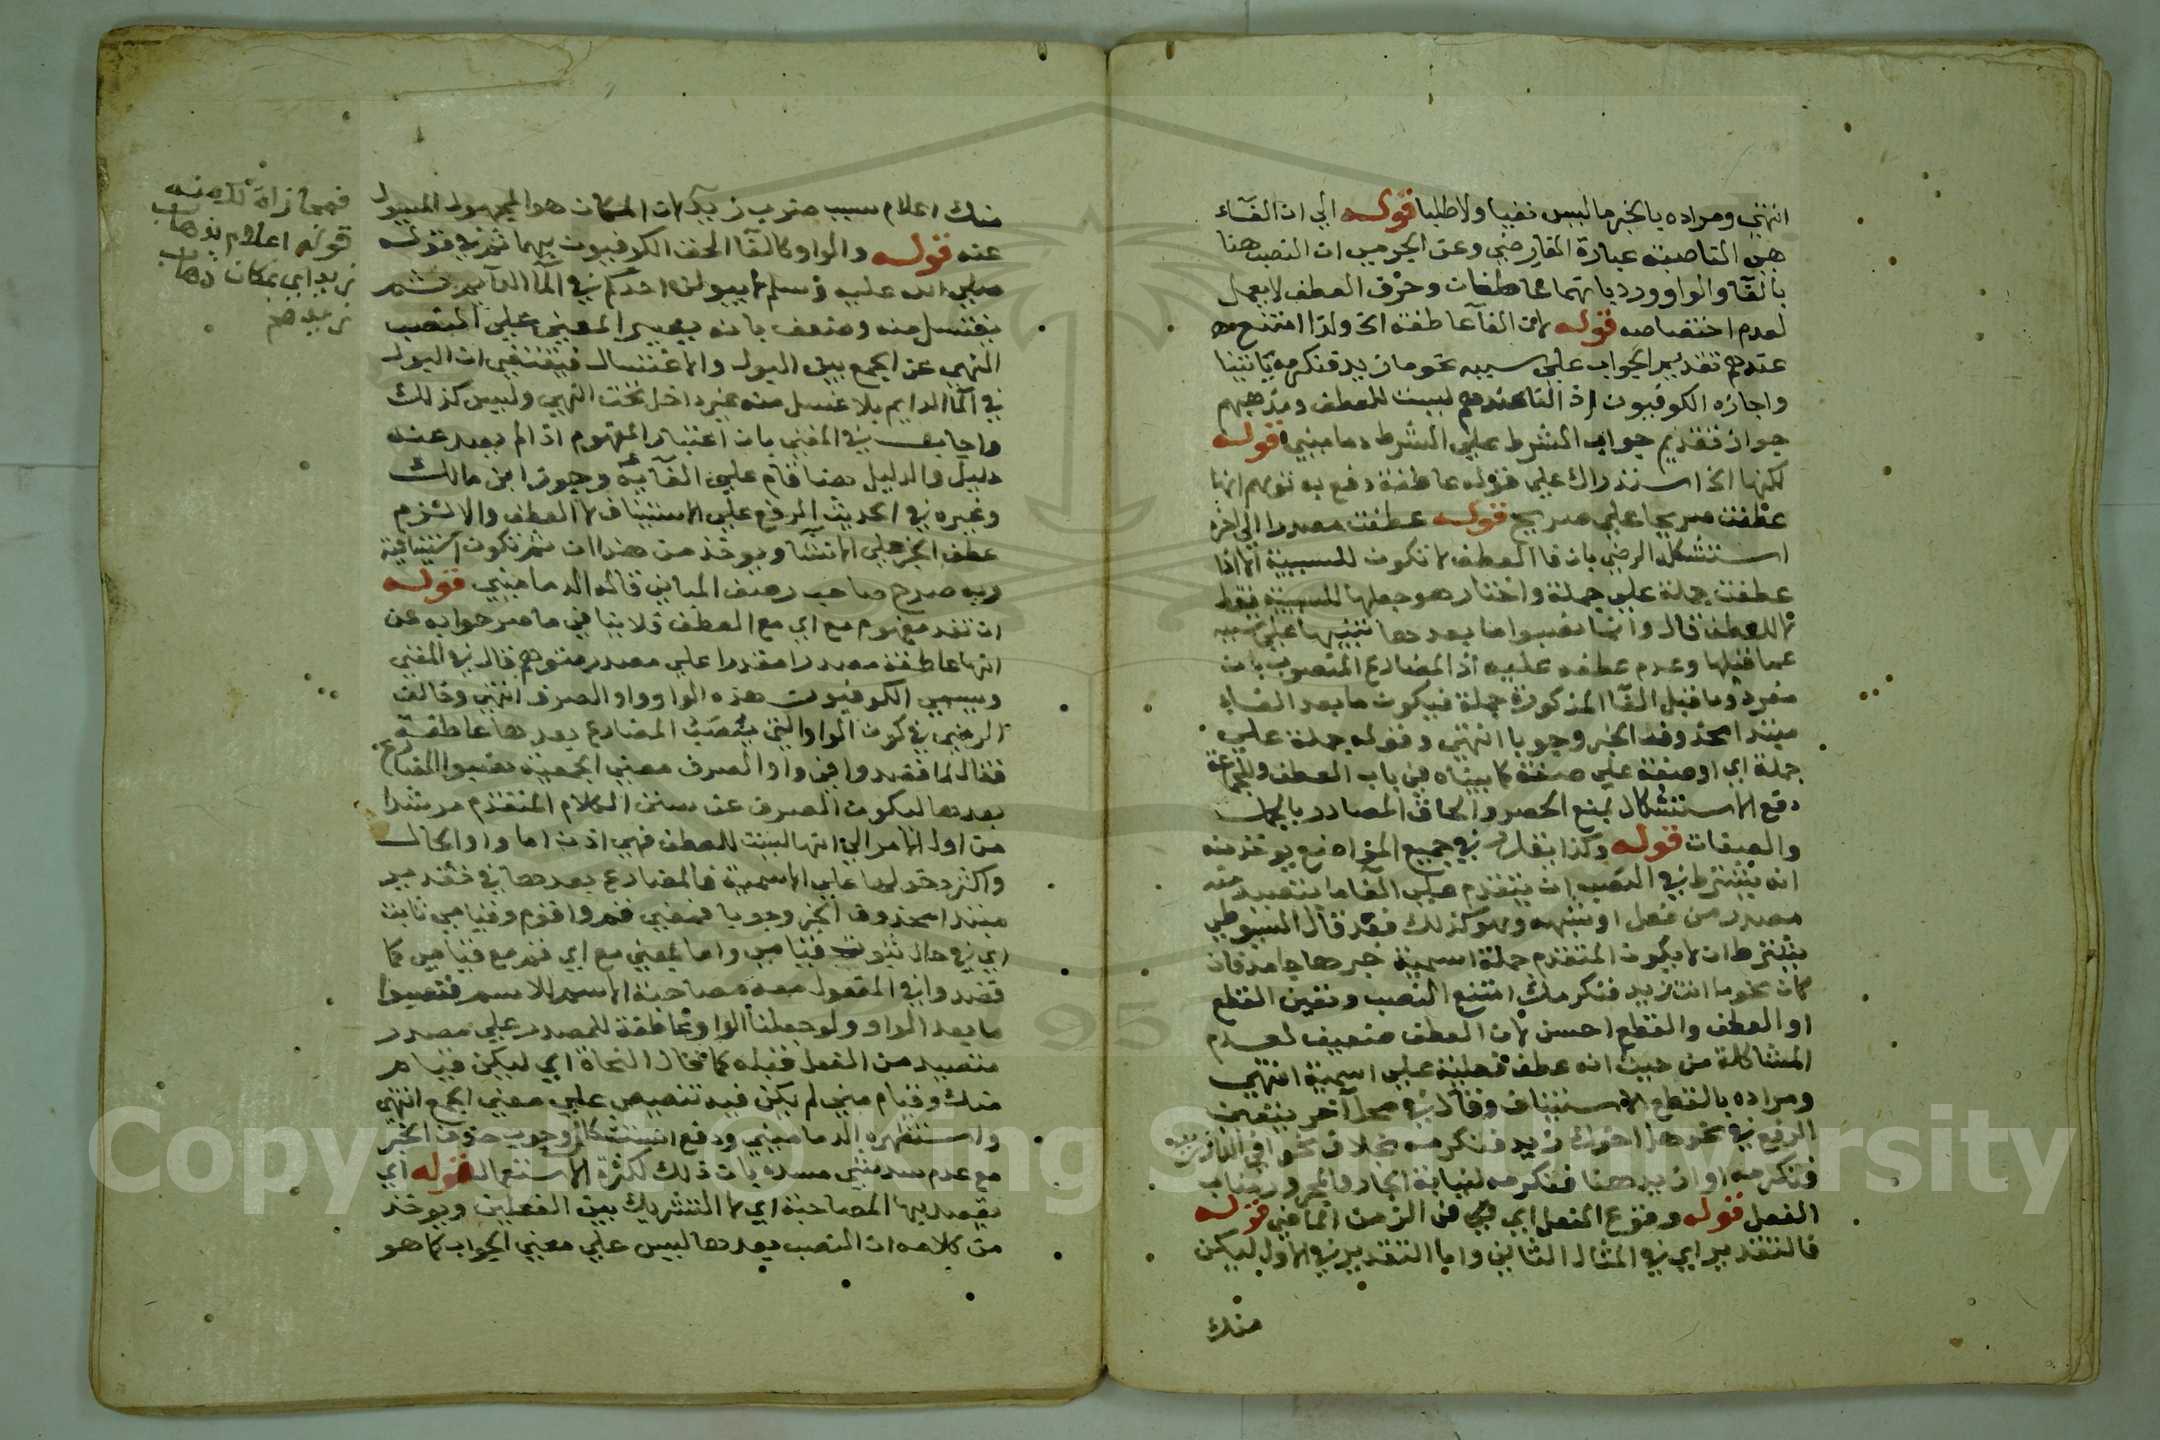 انتهي ومراده بالخبر ما ليس نفيا ولا طلبا قوله الي ان الفآء
هي الناصبة عبارة المفارضي وعن الجرمي ان النصب هنا
بالفآ والواو ورد بانهما عاطفان وحرف العطف لا يعمل
لعدم اختصاصه قوله لان الفآ عاطفة الخ ولذا امتنع
عندهم تقديم الجواب علي سببه نحو ما زيد فنكرمه ياتينا
واجازه الكوفيون اذ الفا عندهم ليست للعطف ومذهبهم
جواز تقديم جواب الشرط علي الشرط دماميني قوله
لكنها الخ استدراك علي قوله عاطفة دفع به توهم انها
عطفت صريحا علي صريح قوله عطفت مصدرا الي اخره
استشكله الرضي بان فا العطف لا تكون للسببية الا اذا
عطفت جملة علي جملة واختار هو جعلها للسببية فقط
لا للعطف قال وانما نصبوا ما بعدها تنبيها علي تسببه
عما قبلها وعدم عطفه عليه اذ المضارع المنصوب بان
مفرد وما قبل الفآ المذكورة جملة فيكون ما بعد الفاء
مبتدا محذوف الخبر وجوبا انتهي وقوله جملة علي
جملة اي او صفة علي صفة كما بيناه في باب العطف وللجماعة
دفع الاستشكال بمنع الحصر والحاق المصادر بالجمل
والصفات قوله وكذا يقدر في جميع المواضع يوخذ منه
انه يشترط في النصب ان يتقدم علي الفا ما يتصيد منه
مصدر من فعل او شبهه وهو كذلك فقد قال السيوطي
يشترط ان لا يكون المتقدم جملة اسمية خبرها جامد فان
كان نحو ما انت زيد فنكرمك امتنع النصب وتعين القطع
او العطف والقطع احسن لان العطف ضعيف لعدم
المشاكلة من حيث انه عطف فعلية علي اسمية انتهي
ومراده بالقطع الاستيناف وقال في محل آخر يتعين
الرفع في نحو هل اخوك زيد فنكرمه بخلاف نحو افي الدار زيد
فنكرمه او ازيد هنا فنكرمه لنيابة الجار والمجرور مناب
الفعل قوله وقوع الفعل اي في الزمن الماضي قوله
فالتقدير اي في المثال الثاني واما التقدير في الاول ليكن
منك
منك اعلام سبب ضرب زيد لان المكان هو المجهول المسول
عنه قوله والواو كالفا الحق الكوفيون بهما ثم في قوله
صلي الله عليه وسلم لا يبولن احدكم في المآ الدآيم ثم
يغتسل منه وضعف بانه يصير المعني علي النصب
النهي عن الجمع بين البول والاغتسال فيقتضي ان البول
في المآ الدايم بلا غسل منه غير داخل تحت النهي وليس كذلك
واجاب في المغني بان اعتبار المفهوم اذا لم يصد عنه
دليل والدليل هنا قام علي الغآيه وجوز ابن مالك
وغيره في الحديث الرفع علي الاستيناف لا العطف والا لزم
عطف الخبر علي الانشا ويوخذ من هذا ان ثم تكون استينافية
وبه صرح صاحب رصف المباني قاله الدماميني قوله
ان تقد مفهوم مع اي مع العطف فلا ينافي ما صرحوا به من
انها عاطفة مصدرا مقدرا علي مصدر متوهم قال في المغني
ويسمي الكوفيون هذه الواو واو الصرف انتهي وخالف
الرضي في كون الواو التي ينصب المضارع بعدها عاطفة
فقال لما قصدوا في واو الصرف معني الجمعية نصبوا المضارع
بعدها ليكون الصرف عن سنن الكلام المتقدم مرشدا
من اول الامر الي انها ليست للعطف فهي اذن اما واو الحال
واكثر دخولها علي الاسمية فالمضارع بعدها في تقدير
مبتدا محذوف الخبر وجوبا فمعني قم واقوم وقيامي ثابت
اي في حال ثبوت قيامي واما بمعني مع اي قم مع قيامي كما
قصدوا في المفعول معه مصاحبة الاسم للاسم فنصبوا
ما بعد الواو ولو جعلنا الواو عاطفة للمصدر علي مصدر
متصيد من الفعل قبله كما قال النحاة اي ليكن قيام
منك وقيام مني لم يكن فيه تنصيص علي معني الجمع انتهي
واستظهره الدماميني ودفع استشكال وجوب حذف الخبر
مع عدم سد شي مسده بان ذلك لكثرة الاستعمال قوله اي
يقصد بها المصاحبة اي لا التشريك بين الفعلين ويوخذ
من كلامه ان النصب بعدها ليس علي معني الجواب كما هو
قوله اعلام بذهاب
زيد اي بمكان ذهاب
Copyright © King Saud University